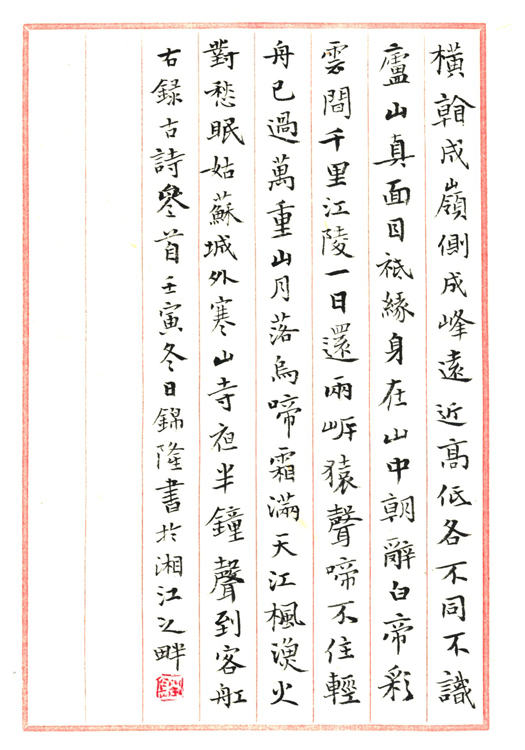 橫看成嶺側成峰遠近高低各不同不識
廬山真面目祗緣身在山中朝辭白帝彩
雲間千里江陵一日還兩岸猿聲啼不住輕
舟已過萬重山月落烏啼霜滿天江楓漁火
對愁眠姑蘇城外寒山寺夜半鐘聲到客舡
右録古詩叄首壬寅冬日錦隆書於湘江之畔